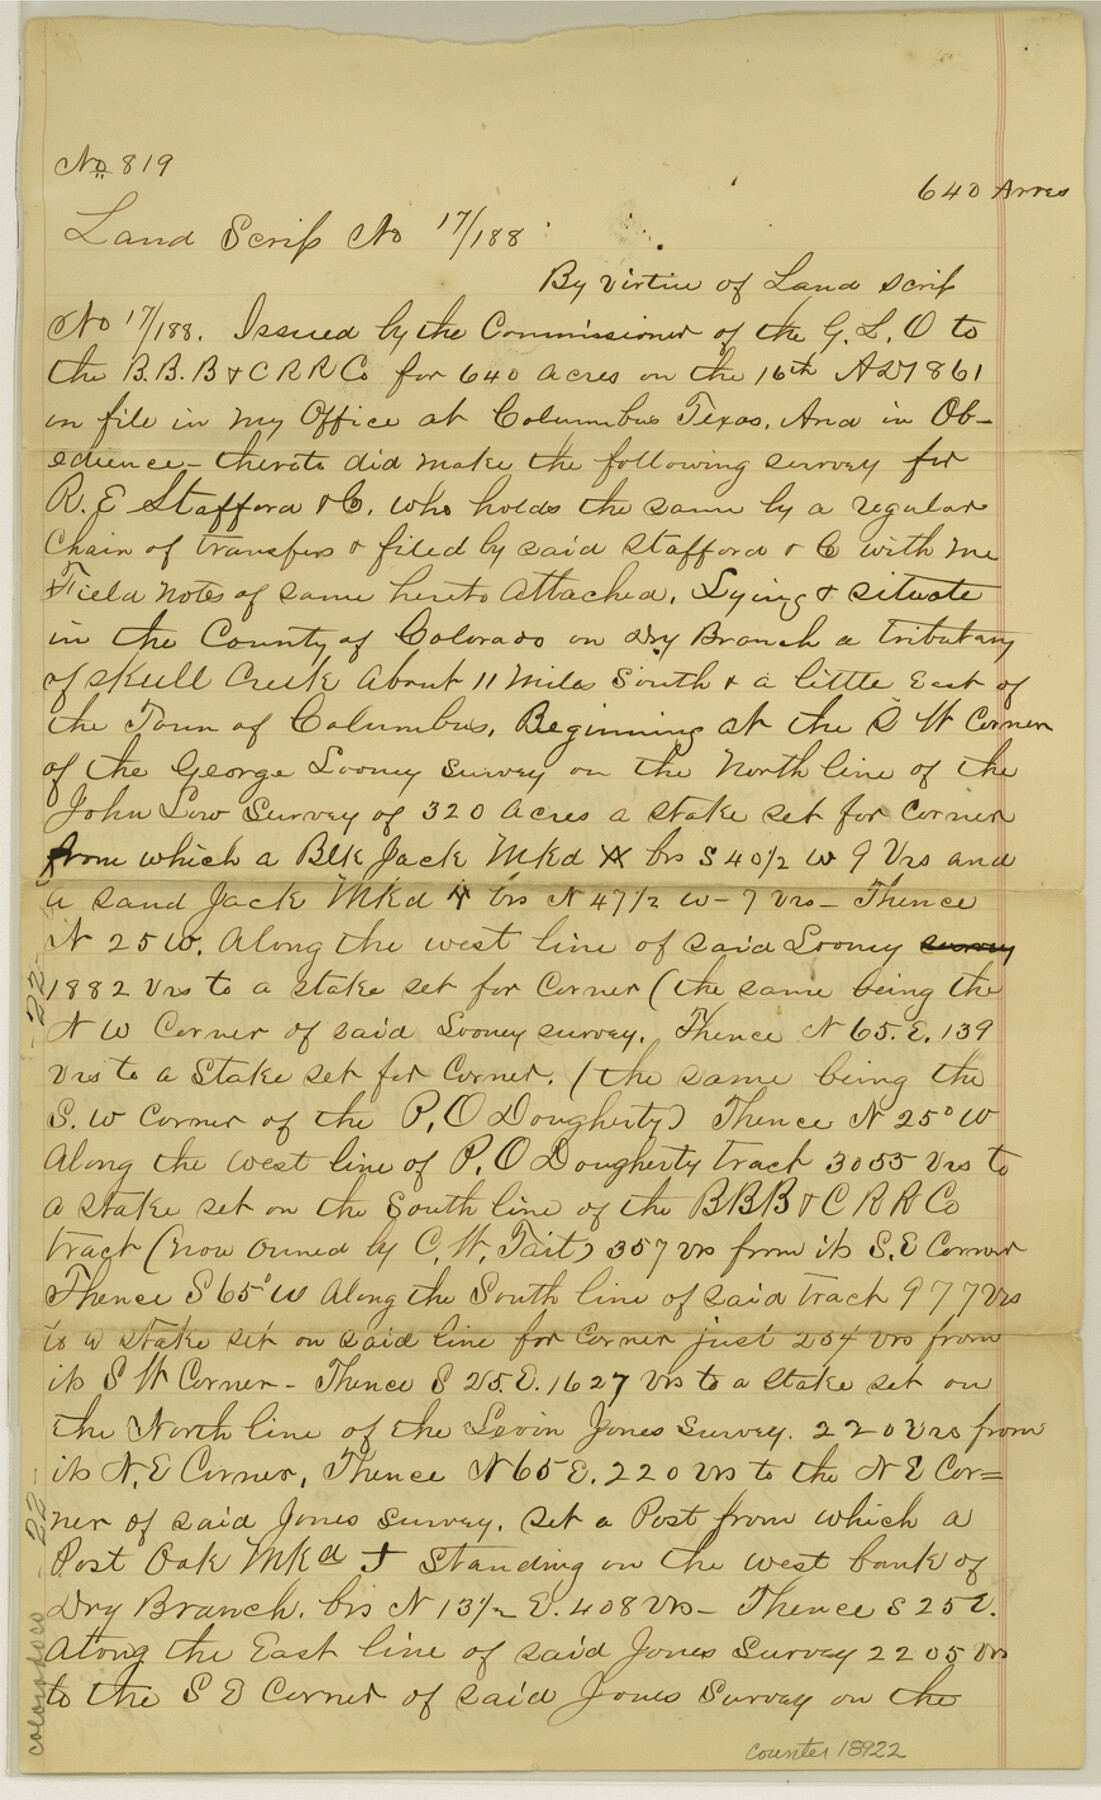 No 819
640 Acres
Land Scrip No 17/188
By virtue of Land Scrip
No 17/188. Issued by the Commissioner of the G. L. O to
the B. B. B & C R R Co for 640 acres on the 16th AD 1861
on file in my Office at Columbus Texas. And in Ob-
edience- thereto did make the following survey for
R. E Stafford & Co. who holds the same by a regular
Chain of transfers & filed by said Stafford & Co with me
Field notes of same hereto attached. Lying & situate
in the County of Colorado on Dry Branch a tributary
of Skull Creek About 11 Miles South & a little East of
the Town of Columbus. Beginning at the S W Corner
of the George Looney Survey on the North line of the
John Low Survey of 320 acres a stake set for Corner
from which a Blk Jack Mkd X brs S 40 1/2 W 9 Vrs and
a sand Jack Mkd X brs N 47 1/2 W - 7 Vrs - Thence
N 25 W. Along the west line of said Looney survey
1882 Vrs to a stake set for Corner (the same being the
N W Corner of said Looney survey. Thence N 65. E. 139
Vrs to a Stake set for Corner. (the same being the
S. W Corner of the P. O Dougherty) Thence N 25° W
Along the west line of P. O Dougherty tract 3055 Vrs to
a stake set on the South line of the BBB & C R R Co
tract (now owned by C. W. Tait) 357 Vrs from its S. E Corner
Thence S 65° W Along the South line of said tract 977 Vrs
to a stake set on said line for Corner just 254 Vrs from
its S W Corner - Thence S 25. E. 1627 Vrs to a stake set on
the North line of the Levin Jones Survey. 220 Vrs from
its N. E Corner, Thence N 65 E. 220 Vrs to the N E Cor=
ner of said Jones Survey. set a Post from which a
Post Oak Mkd J Standing on the west bank of
Dry Branch. brs N 13 1/2 E. 408 Vrs - Thence S 25 E.
Along the East line of said Jones Survey 2205 Vrs
to the S E Corner of said Jones Survey on the
Colorado Co
-22-
-22-
counter 18922